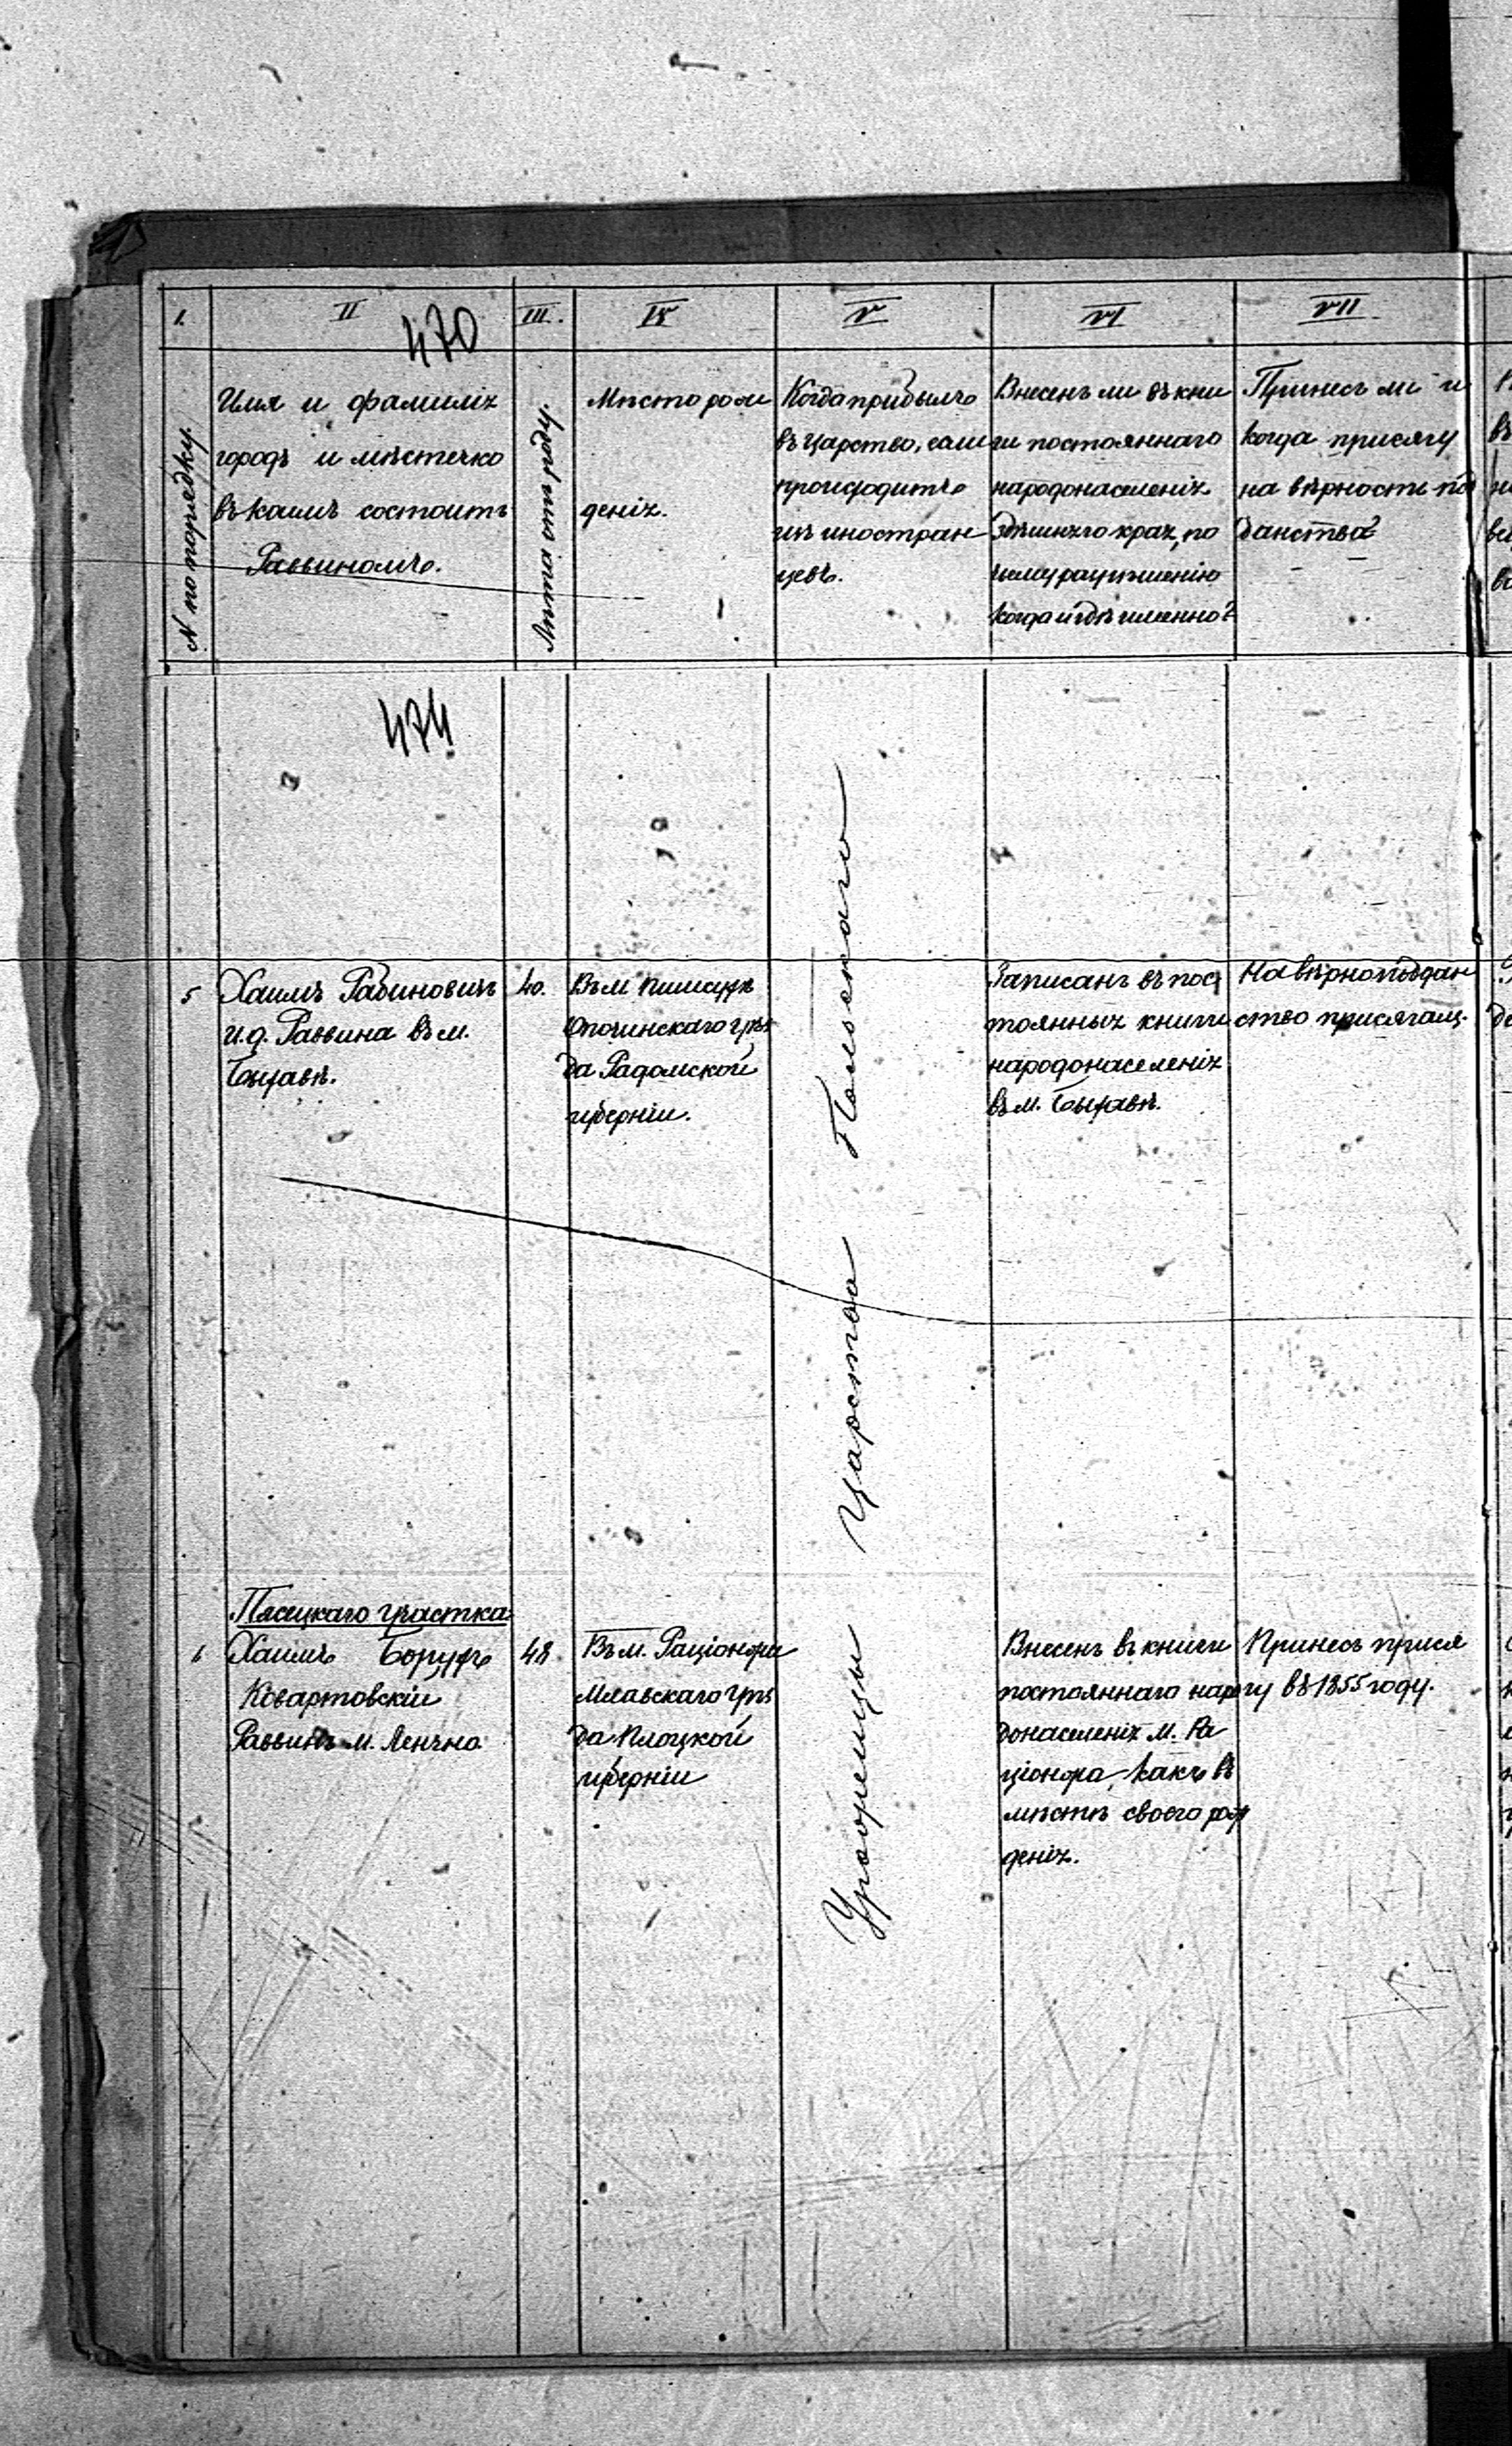 I. II III. IV V VI VII
470
№ по порядку.
Имя и фамилія
городъ и мѣстечко
въ коимъ состоитъ
Раввиномъ.
Лѣта отъ роду.
Мѣсто рож
денія.
Когда прибылъ
въ Царство, если
происходитъ
изъ иностран
цевъ.
Внесенъ ли въ кни
ги постояннаго
народонаселенія
здѣшняго края, по
чьему разрѣшенію
когда и гдѣ именно?
Принесъ ли и
когда присягу
на вѣрность под
данства?
474
5
Хаимъ Рабиновичъ
и.д. Раввина въ м.
Быхавѣ.
40.
Въ м.
Опочинскаго уѣз
да Радомской
губерніи.
Уроженцы Царства Польскаго
Записанъ въ пос
тоянныя книги
народонаселенія
въ м. Быхавѣ.
На вѣрноподдан
ство присягалъ.
Пясецкаго участка
6
Хаимъ Борухъ
Ковартовскій
Раввинъ м. Ленчно
48
Въ м. Раціонжа
Млавскаго уѣз
да Плоцкой
губерніи
Внесенъ въ книги
постояннаго наро
донаселенія м. Ра
ціонжа, какъ въ
мѣстѣ своего рож
денія.
Принесъ прися
гу въ 1855 году.